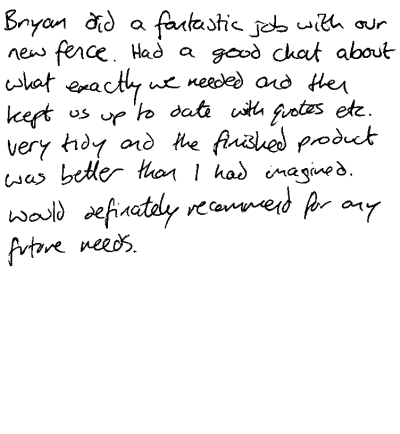 Bryan did a fantastic job with our
new fence. Had a good chat about
what exactly we needed and then
kept us up to date with quotes etc.
very tidy and the finished product
was better than I had imagined.
would definately recommend for any
future needs.